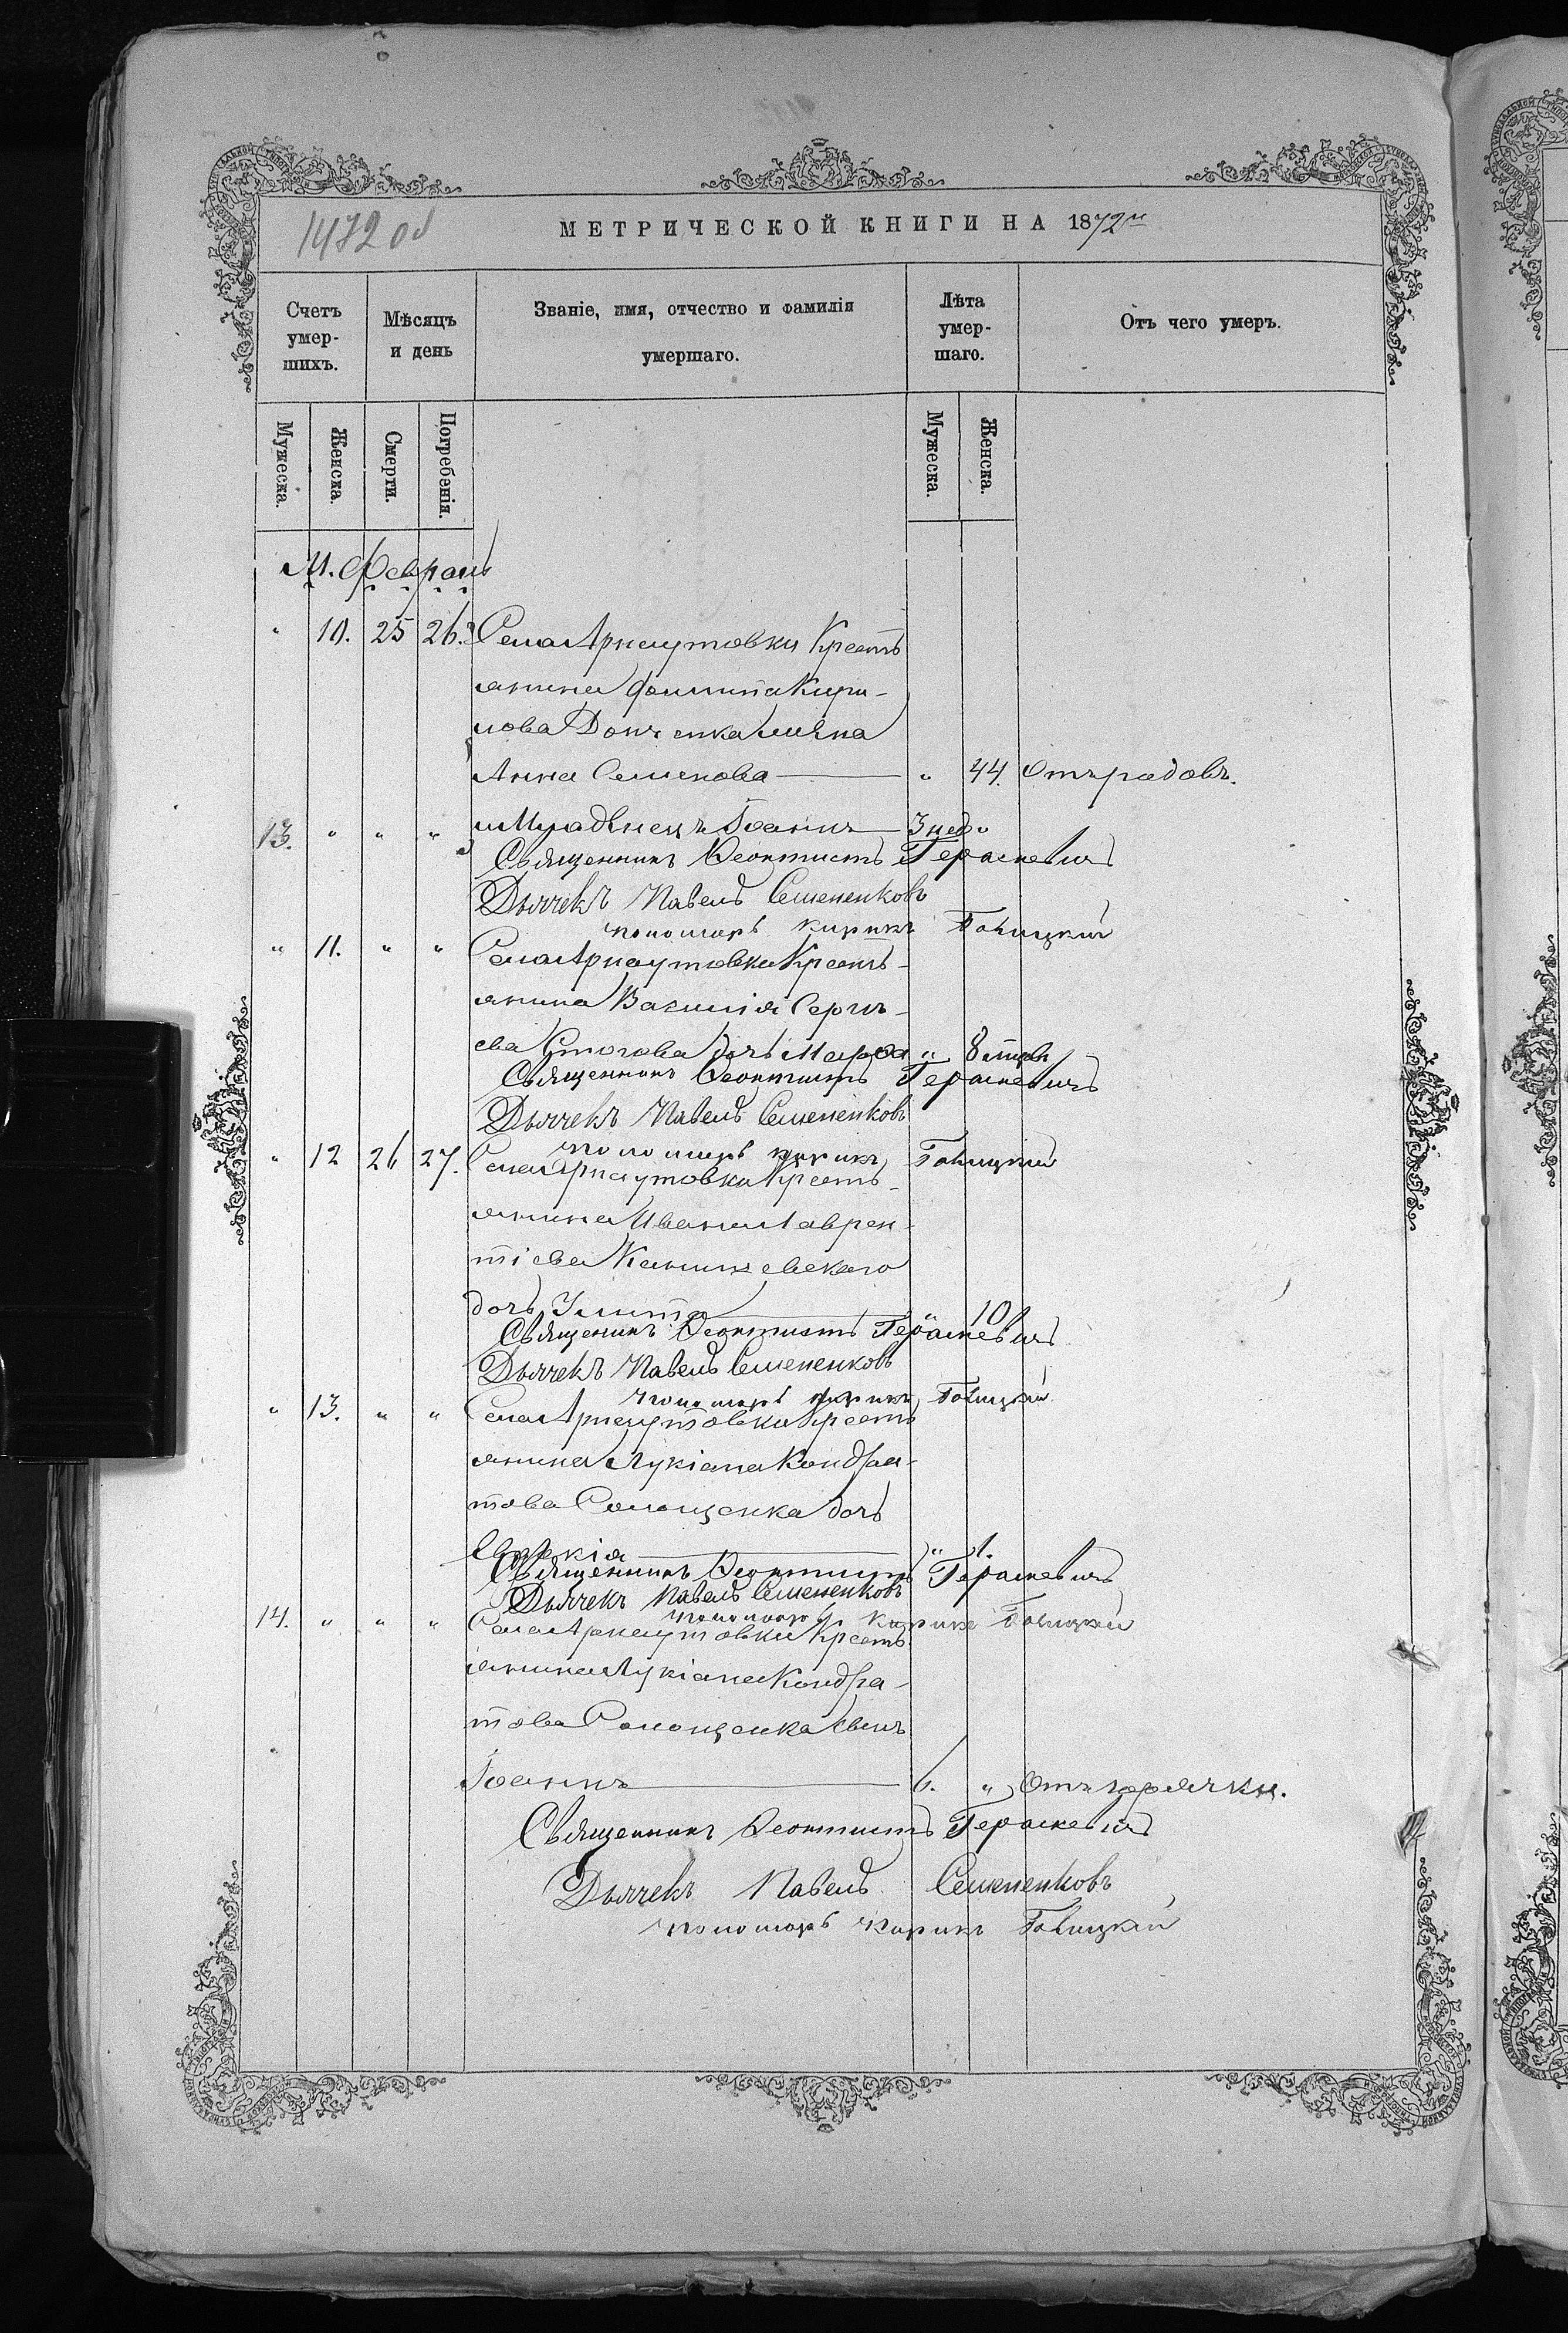 1472 об
МЕТРИЧЕСКОЙ КНИГИ НА 1872 г.
Счетъ умер-шихъ.
Мѣсяцъ и день
Званіе, имя, отчество и фамилія умершаго.
Лѣта умер-шаго.
Отъ чего умеръ.
Мужеска. Женска. Смерти. Погребенія. Мужеска. Женска.
М. Февраль
" 10. 25 26. Села Арнаутовки Кресть
янина Филиппа Кири-
лова Донченка жена
Анна Семенова " 44. Отъ родовъ.
13. " " " и Младенецъ Іоаннъ 3 нед. "
Священникъ Ѳеоктистъ Гераскевичъ
Дьячекъ Павелъ Семененковъ
пономарь Кирикъ
" 11. " " Села Арнаутовки Кресть-
янина Василія Серги-
ева дочь Марѳа "
Священникъ Ѳеоктистъ Гераскевичъ
Дьячекъ Павелъ Семененковъ
пономарь Кирикъ
" 12 26 27. Села Арнаутовки Кресть-
янина Ивана Лаврен-
тіева
дочь Улита " 10
Священникъ Ѳеоктистъ Гераскевичъ
Дьячекъ Павелъ Семененковъ
пономарь Кирикъ
" 13. " " Села Арнаутовки Кресть
янина Лукіана Кондра-
това Солощенка дочь
" 1.
Священникъ Ѳеоктистъ Гераскевичъ
Дьячекъ Павелъ Семененковъ
пономарь Кирикъ
14. " " " Села Арнаутовки Кресть
янина Лукіана Кондра-
това Солощенка сынъ
Іоаннъ 6. " Отъ горячки.
Священникъ Ѳеоктистъ Гераскевичъ
Дьячекъ Павелъ Семененковъ
пономарь Кирикъ